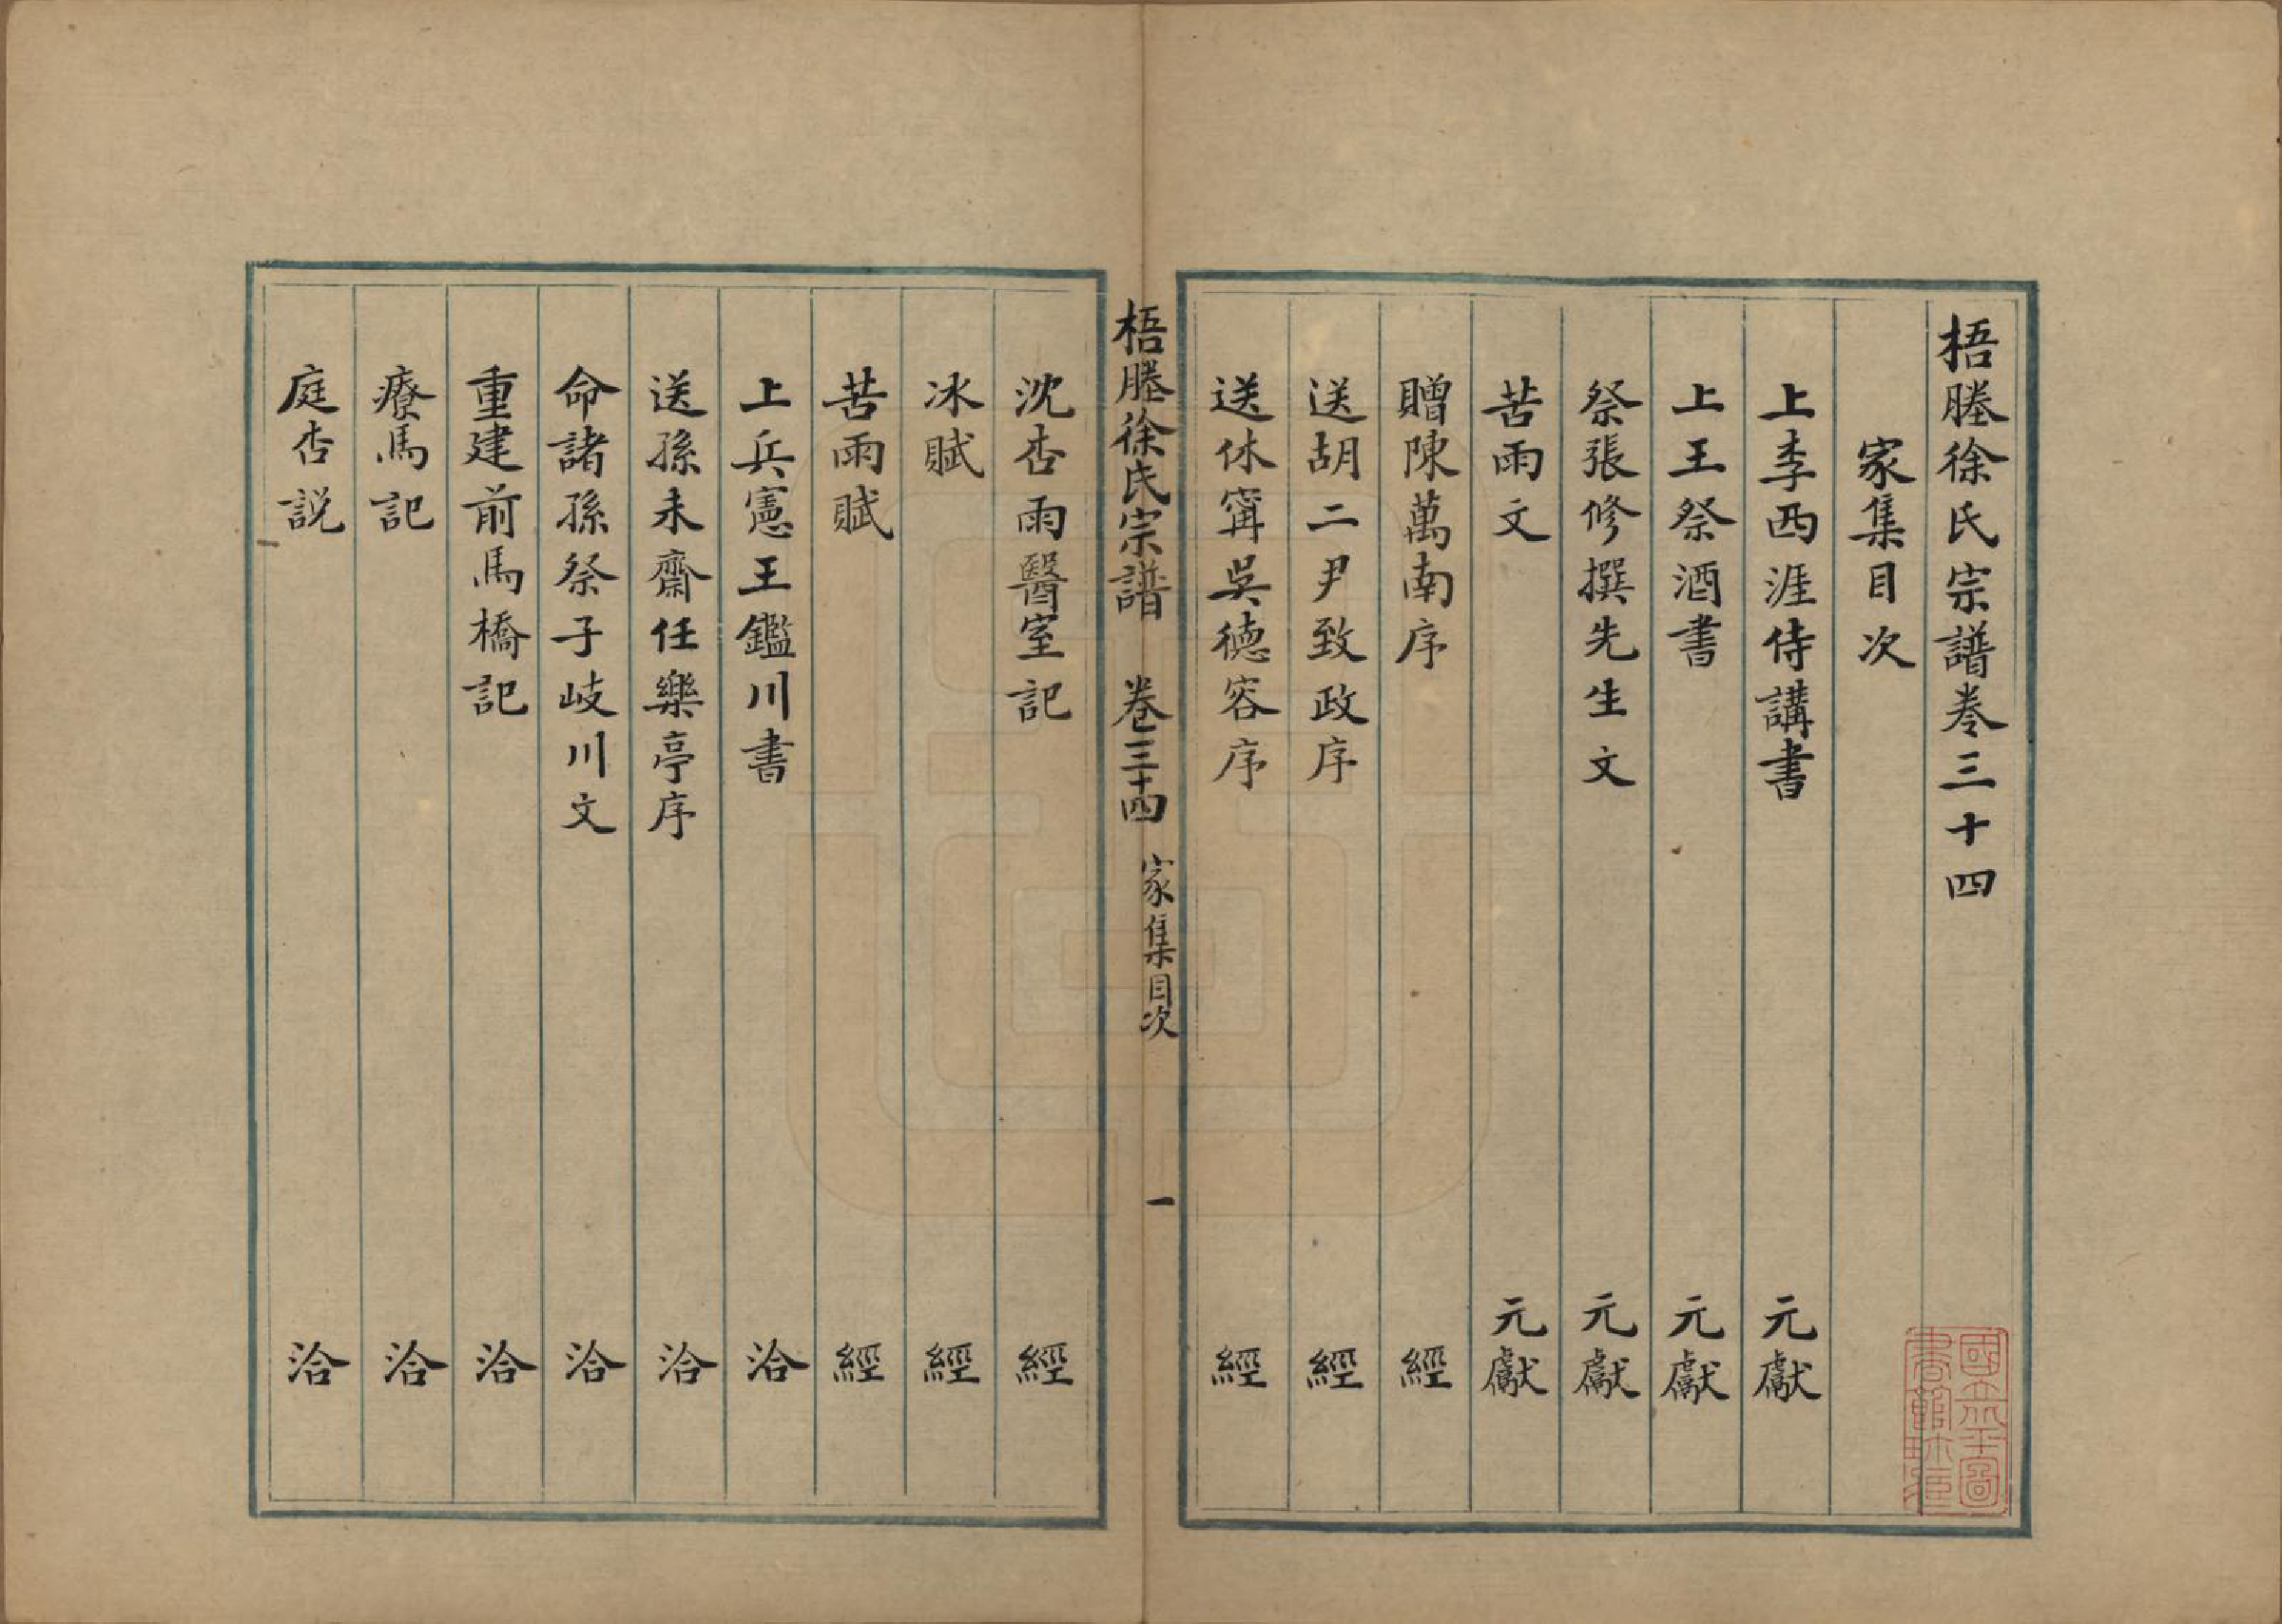 梧塍徐氏宗譜卷三十四
家集目次
上李西涯侍講書 元獻
上王祭酒書 元獻
祭張修撰先生文 元獻
苦雨文 元獻
贈陳萬南序 經
送胡二尹致政序 經
送休甯吳德容序 經
梧塍徐氏宗譜 卷三十四 家集目次 一
沈杏雨醫室記 經
冰賦 經
苦雨賦 經
上兵憲王鑑川書 洽
送孫未齋任樂亭序 洽
命諸孫祭子岐川文 洽
重建前馬橋記 洽
療馬記 洽
庭杏説 洽
國立北平圖
書館珍藏